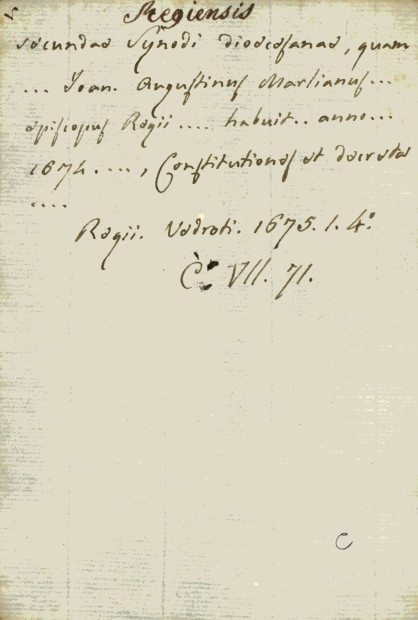 Regiensis
secundae Synodi dioecesanae, quam
... Joan. Augustinus Marlianus ...
episcopus Regii .... habuit .. anno ...
1674 ...., Constitutiones et decreta
....
Regii. Vedroti. 1675. 1. 4°.
C. VII. 71.
C